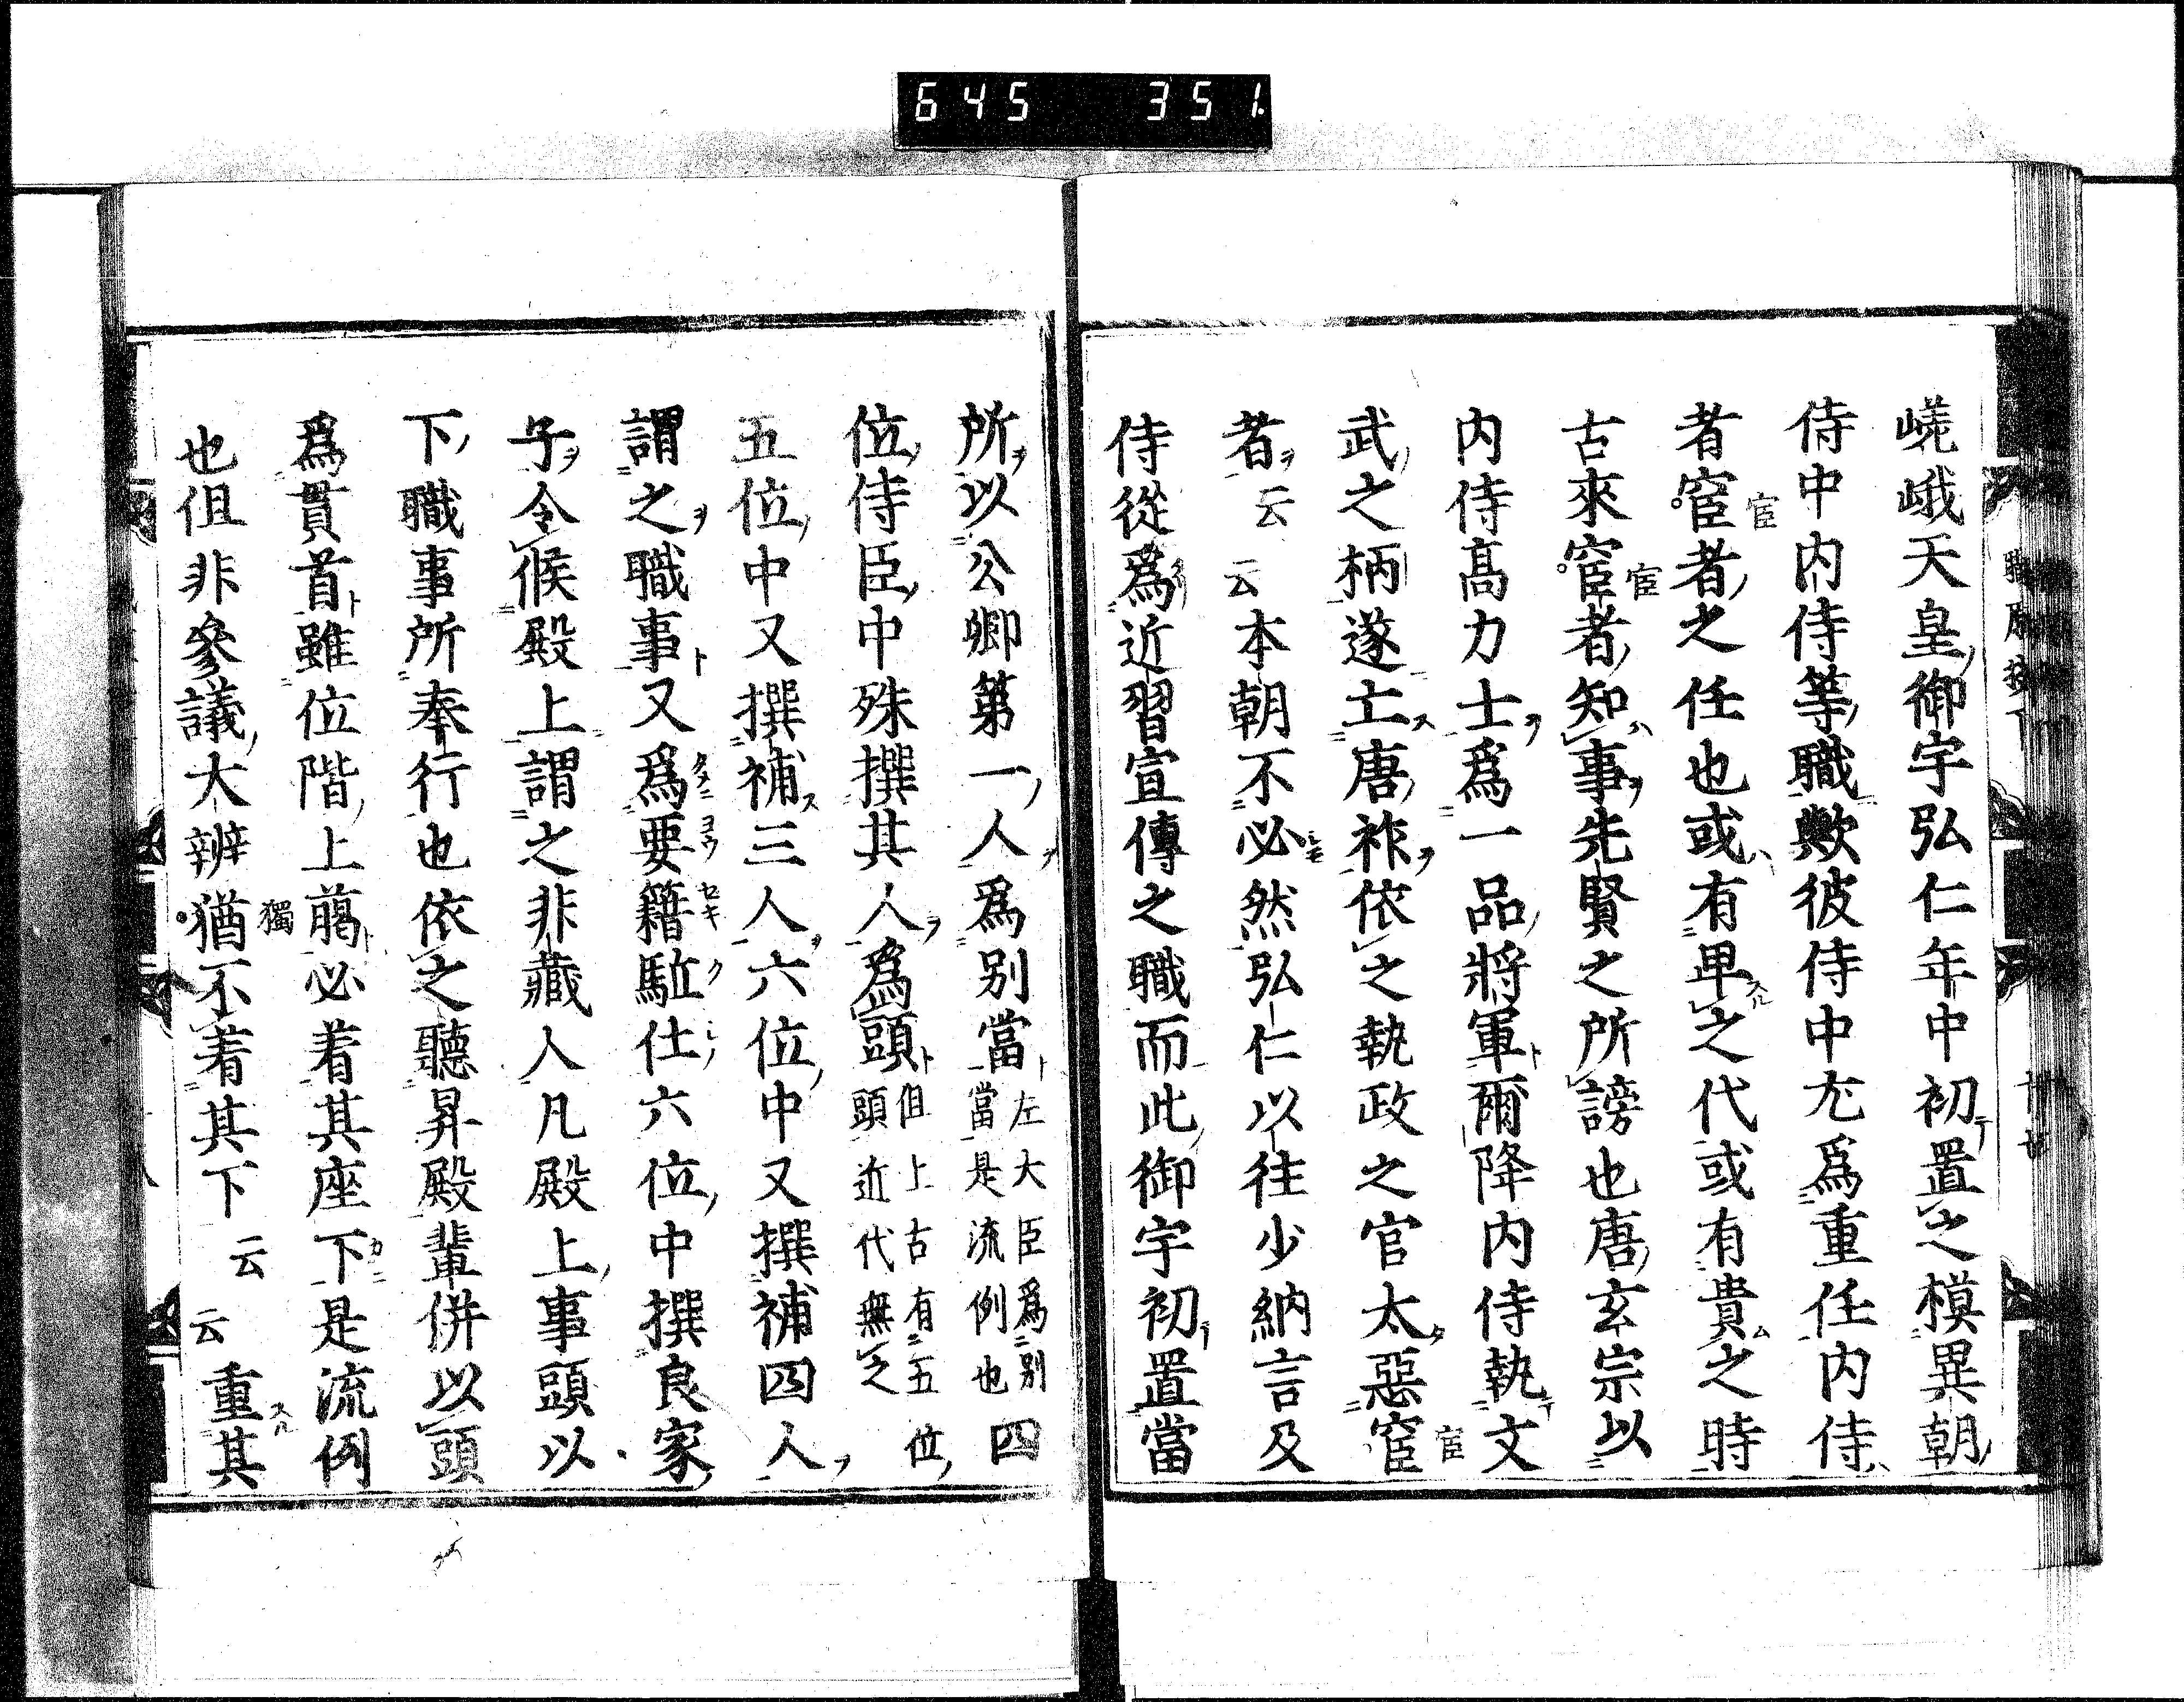 645 351
嵯峨天皇御宇弘仁年中初置之模異朝
侍中内侍等職歟彼侍中尤爲重任内侍
者宦者之任也或有卑之代或有貴之時
古來宦者知事先賢之所謗也唐玄宗以
内侍髙力士爲一品將軍爾降内侍執文
武之柄遂亡唐祚依之執政之官太惡宦
者云云本朝不必然弘仁以往少納言及
侍從爲近習宣傳之職而此御宇初置當
所以公卿第一人爲别當左大臣爲别當是流例也四
位侍臣中殊撰其人爲頭但上古有五位頭近代無之
五位中又撰補三人六位中又撰補四人
謂之職事又爲要籍駈仕六位中撰良家
子令候殿上謂之非藏人凡殿上事頭以
下職事所奉行也依之聽昇殿輩併以頭
爲貫首雖位階上﨟必着其座下是流例
也但非參議大辨猶不着其下云云重其